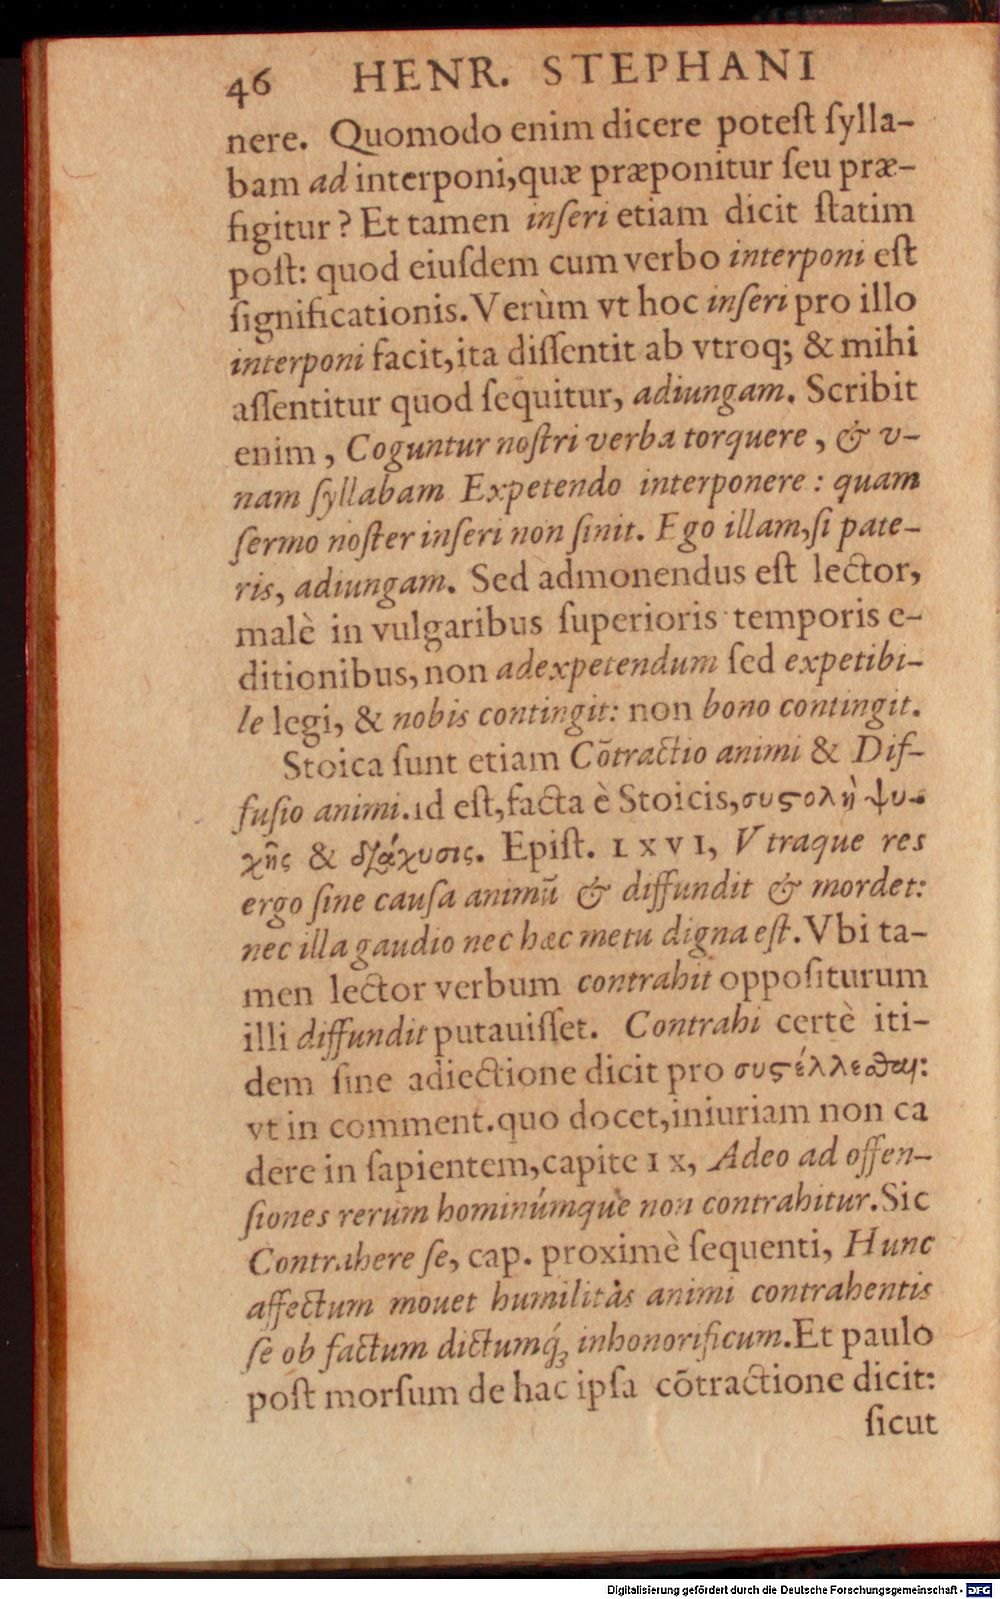 46 HENR. STEPHANI
nere. Quomodo enim dicere poteſt ſylla-
bam ad interponi,quæ præponitur ſeu præ-
figitur? Et tamen inſeri etiam dicit ſtatim
poſt: quod eiuſdem cum verbo interponi eſt
ſignificationis. Verùm vt hoc inſeri pro illo
interponi facit,ita diſſentit ab vtroq; & mihi
aſſentitur quod ſequitur, adiungam. Scribit
enim, Coguntur noſtri verba torquere, & v-
nam ſyllabam Expetendo interponere: quam
ſermo noſter inſeri non ſinit. Ego illam,ſi pate-
ris, adiungam. Sed admonendus eſt lector,
malè in vulgaribus ſuperioris temporis e-
ditionibus, non adexpetendum ſed expetibi-
le legi, & nobis contingit: non bono contingit.
Stoica ſunt etiam Cõtractio animi & Dif-
fuſio animi.id eſt,facta è Stoicis,συϛολὴ ψυ-
χῆς & διάχυσις. Epiſt. LXVI, Vtraque res
ergo ſine cauſa animũ & diffundit & mordet:
nec illa gaudio nec hæc metu digna eſt.Vbi ta-
men lector verbum contrahit oppoſiturum
illi diffundit putauiſſet. Contrahi certè iti-
dem ſine adiectione dicit pro συϛέλλεσθαι:
vt in comment.quo docet,iniuriam non ca
dere in ſapientem,capite IX, Adeo ad offen-
ſiones rerum hominúmque non contrahitur.Sic
Contrahere ſe, cap. proximè ſequenti, Hunc
affectum mouet humilitàs animi contrahentis
ſe ob factum dictumq́; inhonorificum.Et paulo
poſt morſum de hac ipſa cõtractione dicit:
ſicut
Digitalisierung gefördert durch die Deutsche Forschungsgemeinschaft - DFG